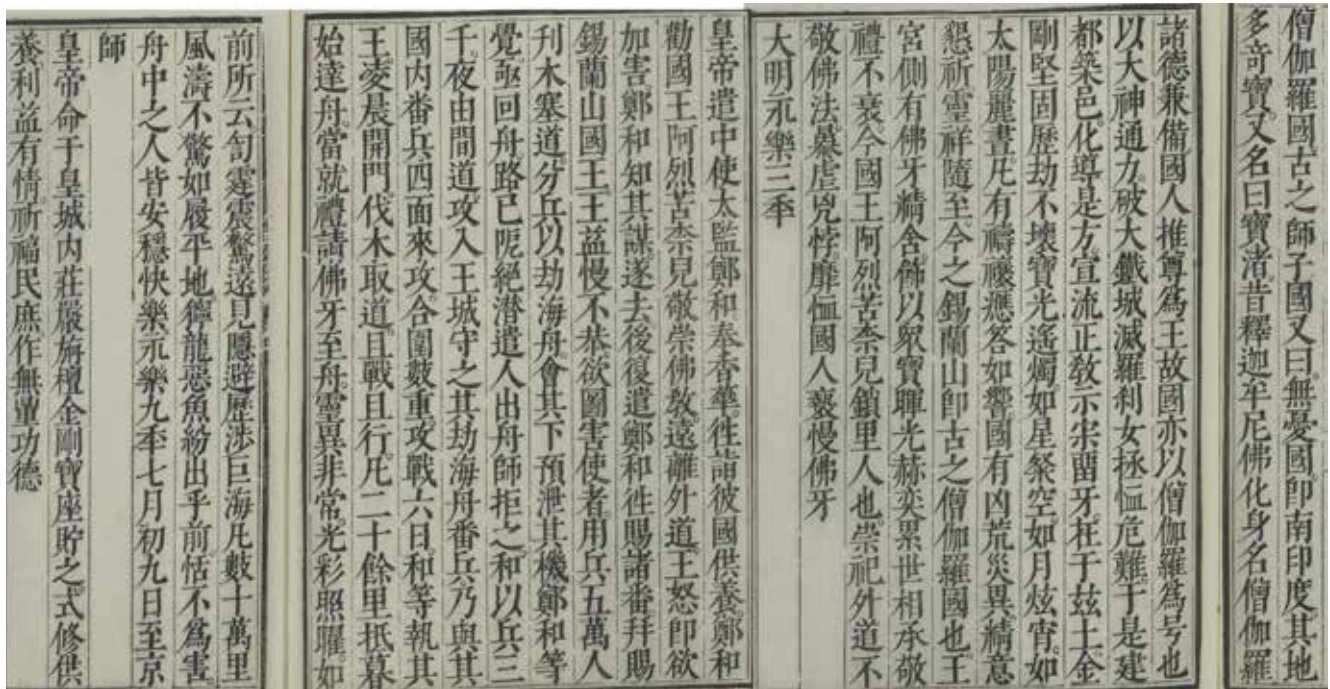 僧伽羅國古之師子國又曰無憂國即南印度其地
多奇寶又名曰寶渚昔釋迦牟尼佛化身名僧伽羅
諸德兼備國人推尊為王故國亦以僧伽羅為号也
以大神通力破大鐵城滅羅剎女拯恤危難于是建
都築邑化導是方宣流正教示宗留牙在于玆土金
剛堅固歷劫不壞寶光遙燭如星粲空如月炫宵如
太陽麗晝凡有禱禳應答如響國有凶荒災異精意
懇祈靈祥隨至今之錫蘭山即古之僧伽羅國也王
宮側有佛牙精舍飾以眾寶暉光赫奕累世相承敬
禮不衰今國王阿烈苦柰兒鎖里人也崇祀外道不
敬佛法暴虐兇悖靡恤國人褻慢佛牙
大明永樂三年
皇帝遣中使太監鄭和奉香華往詣彼國供養鄭和
勸國王阿烈苦柰兒敬崇佛教遠離外道王怒即欲
加害鄭和知其謀遂去後復遣鄭和往賜諸番拜賜
錫蘭山國王王益慢不恭欲圖害使者用兵五萬人
刊木塞道分兵以劫海舟會其下預泄其機鄭和等
覺亟回舟路已阨絕潛遣人出舟師拒之和以兵三
千夜由間道攻入王城守之其劫海舟番兵乃與其
國內番兵四面來攻合圍數重攻戰六日和等執其
王凌晨開門伐木取道且戰且行凡二十餘里抵暮
始達舟當就禮請佛牙至舟靈異非常光彩照曜如
前所云訇霆震驚遠見隱避歷涉巨海凡數十萬里
風濤不驚如履平地獰龍惡魚紛出乎前恬不為害
舟中之人皆安穩快樂永樂九年七月初九日至京
師
皇帝命于皇城內莊嚴旃檀金剛寶座貯之式修供
養利益有情祈福民庶作無量功德